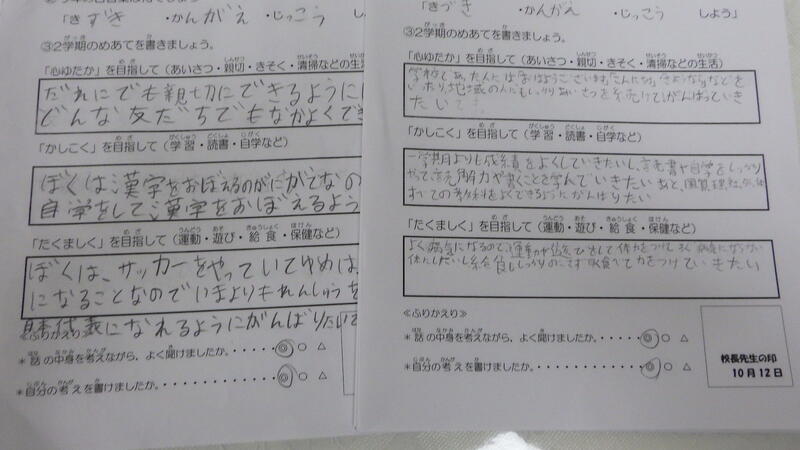 「きずき ・かんがえ ・じっこう
③2学期のめあてを書きましょう。
「心ゆたか」を目指して(あいさつ・親切・きそく・清掃などの生活
だれにでも親切にできるように
どんな友だちでもなかよくでき
「かしこく」を目指して(学習・読書・自学など)
ぼくは漢字をおぼえるのがにがてなの
自学をして漢字をおぼえるよう
「たくましく」を目指して(運動・遊び・給食・保健など)
ぼくは、サッカーをやっていてゆめは
になることなのでいまよりもれんしゅうを
日本代表になれるようにがんばりたいで
≪ふりかえり≫
*話の中身を考えながら、よく聞けましたか。・・・・・◎ ○ △
*自分の考えを書けましたか。・・・・・◎ ○ △
「きづき ・かんがえ ・じっこう しよう」
③2学期のめあてを書きましょう。
「心ゆたか」を目指して(あいさつ・親切・きそく・清掃などの生活)
学校であった人にはおはようございます、こんにちは、さようならなどを
地域の人にもしっかりあいさつを続けてがんばっていき
たい
「かしこく」を目指して(学習・読書・自学など)
一学期よりも成績をよくしていきたいし、読書や自学をしっかり
やって読解力や書くことを学んでいきたい あと、国算理社
すべての教科をよくできるようにがんばりたい
「たくましく」を目指して(運動・遊び・給食・保健など)
よく病気になるので、運動や遊びをして体力をつけて
体にしたいし給食もしっかりのこさず食べて力をつけていきたい
≪ふりかえり≫
*話の中身を考えながら、よく聞けましたか。・・・・・◎ ○ △
*自分の考えを書けましたか。・・・・・◎ ○ △
校長先生の印
10月12日